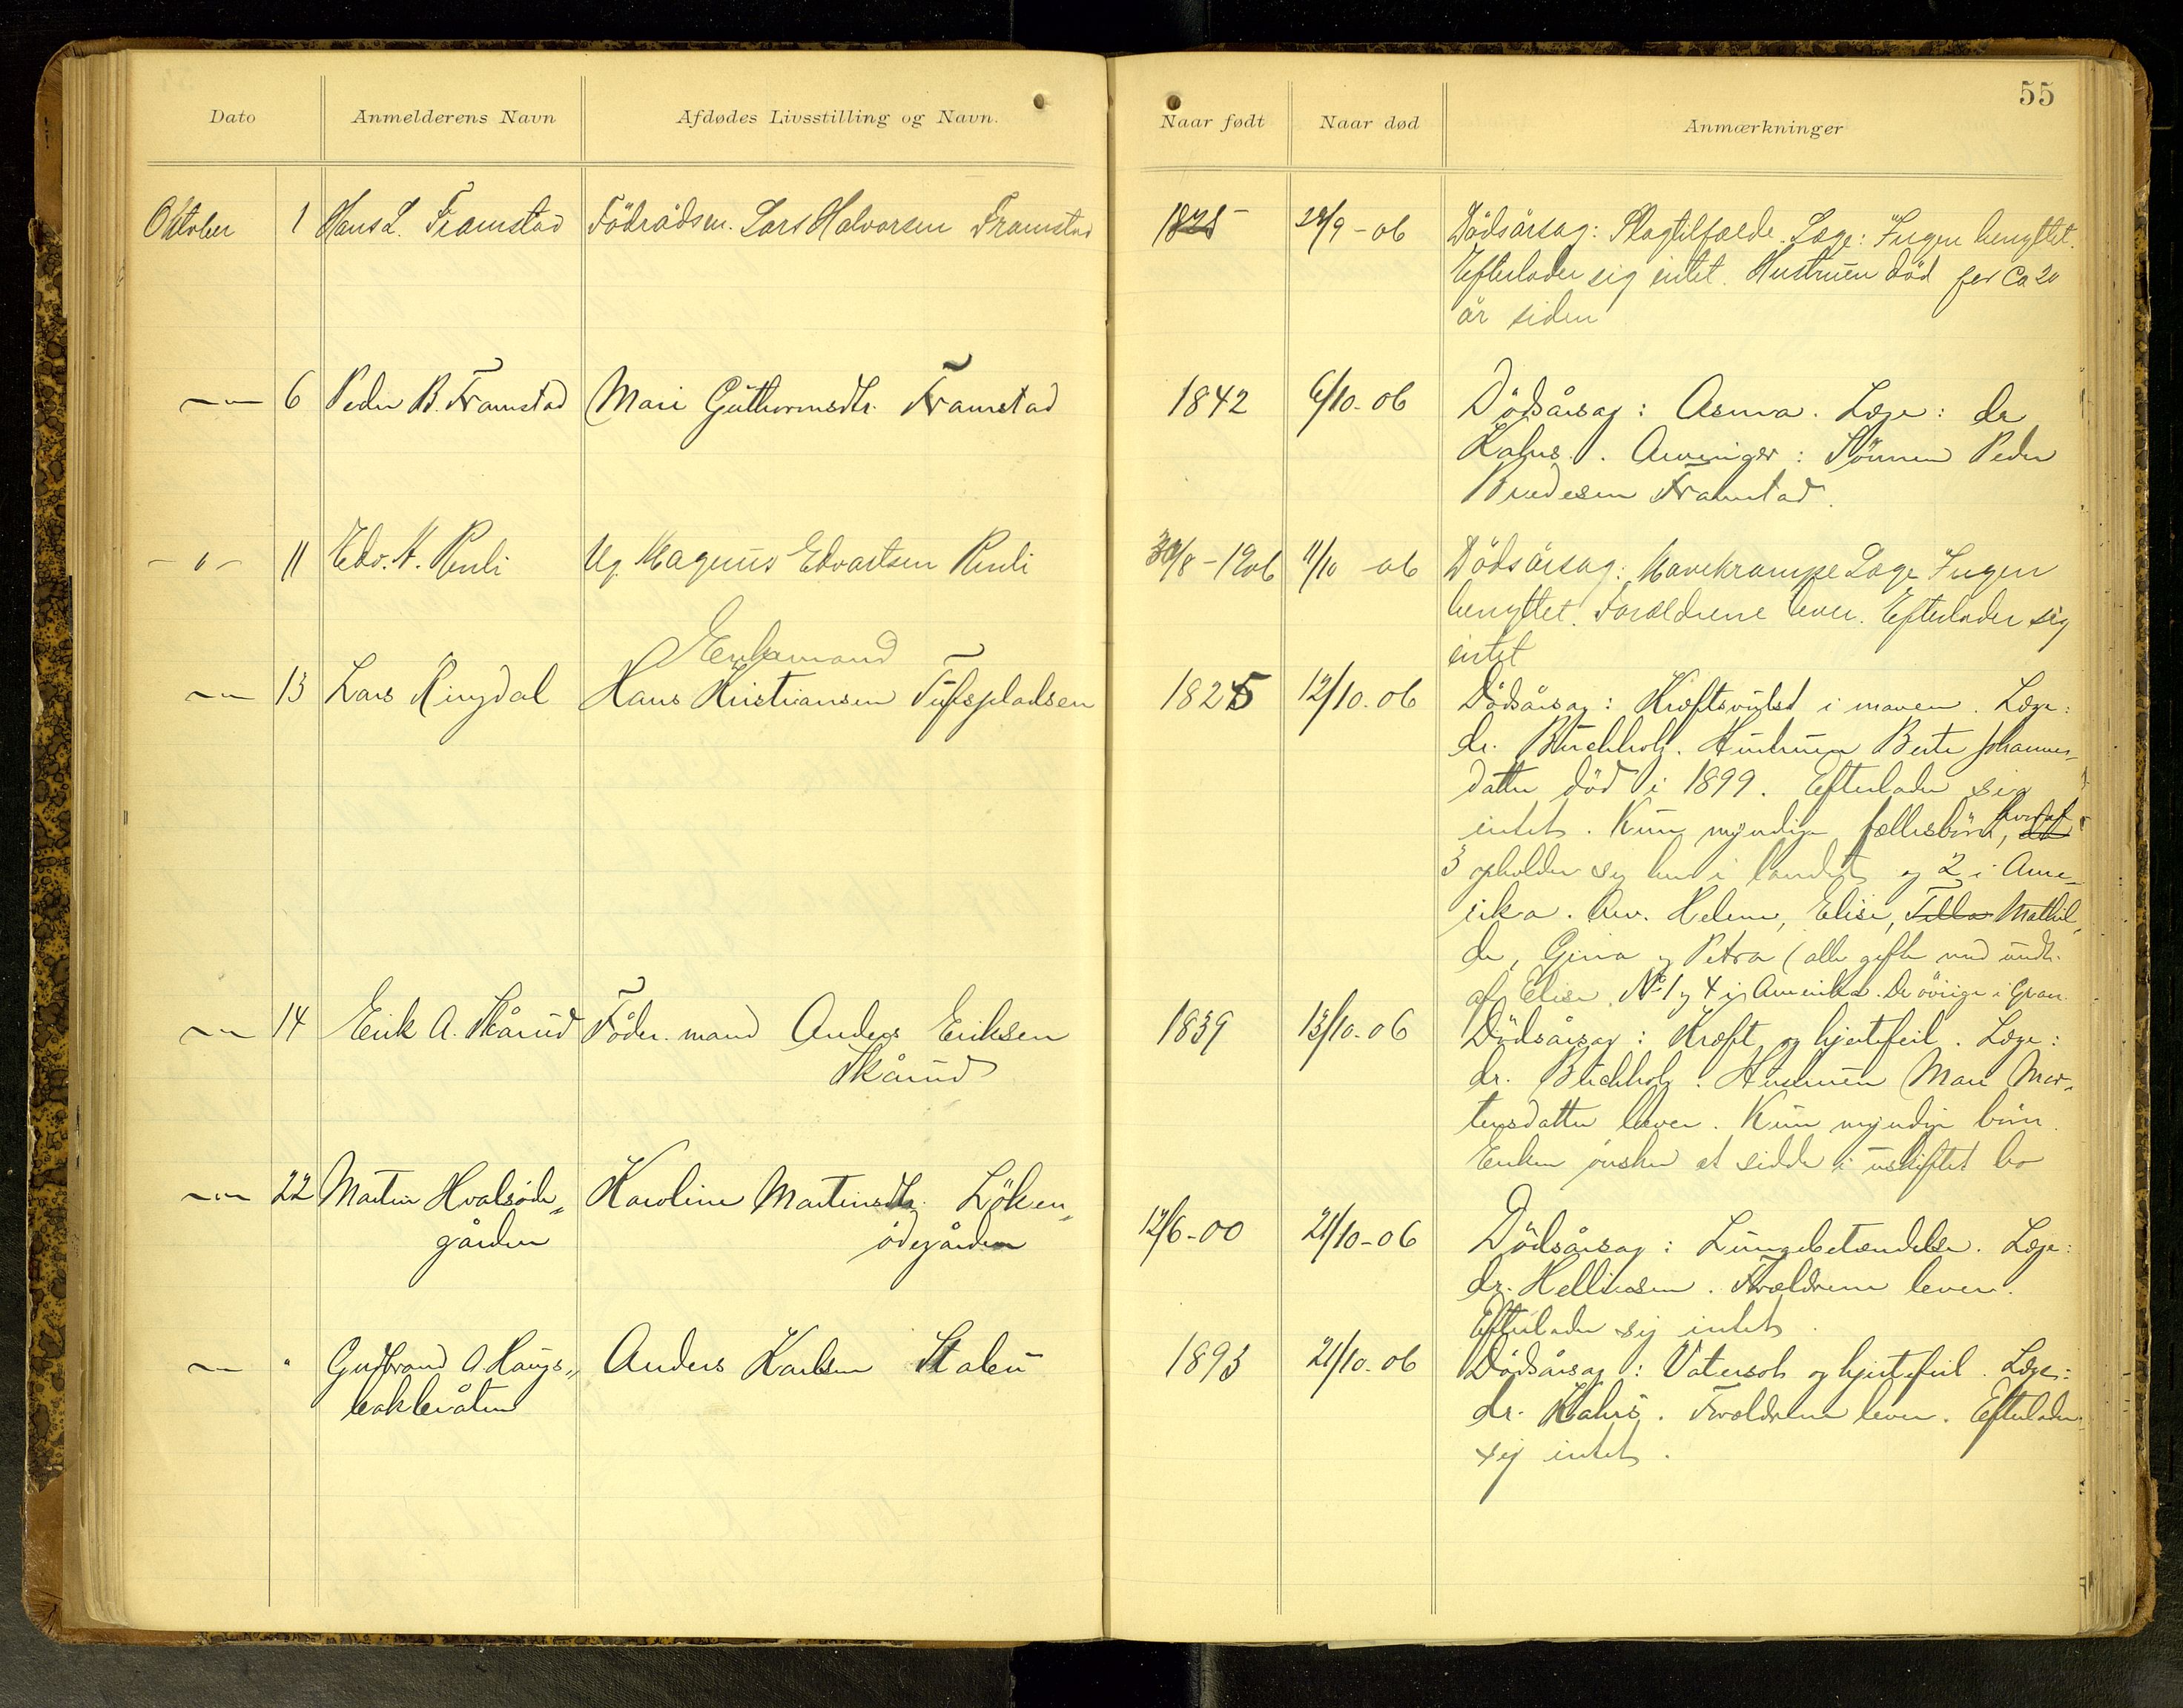 55
Dato Anmelderens Navn Afdødes Livsstilling og Navn. Naar født Naar død Anmærkninger
Oktober 1 Hans L. Framstad Födrådsm. Lars Halvorsen Framstad 1825 28/9-06 Dödsårsag: Slagtilfælde. Læge: Ingen benyttet.
Efterlader sig intet. Hustruen död for Ca 20
år siden
-"- 6 Peder B. Framstad Mari Guthormsdtr. Framstad 1842 6/10-06 Dödsårsag: Asma. Læge: dr
Kahrs. Arvinger: Sönnen Peder
Bredesen Framstad.
-"- 11 Edv. H. Ruli Ug. Magnus Edvartsen Ruli 30/8-1906 11/10-06 Dödsårsag: Mavekrampe Læge Ingen
benyttet. Forældrene lever. Efterlader sig
intet
Enkemand
-"- 13 Lars Ringdal Hans Kristiansen Tufspladsen 1825 12/10.06 Dödsårsag: Kræftsvulst i maven. Læge:
dr. Buchholz. Hustruen Berte Johannes-
datter död i 1899. Efterlader sig
intet. Kun myndige fællesbörn, hvoraf
3 opholder sig her i landet og 2 i Ame-
rika. Arv. Helene, Elise, Mathil-
de, Gina og Petra (alle gifte med undt.
af Elise. No 1 og 4 i Amerika. De övrige i Gran.
-"- 14 Erik A. Skårud Föder.mand Anders Eriksen 1839 13/10.06 Dödsårsag: Kræft og hjertefeil. Læge:
Skårud dr. Buchholz. Hustruen Mari Mor-
tensdatter lever. Kun myndige börn.
Enken önsker at sidde i uskiftet bo
-"- 22 Martin Hvalsöde- Karoline Martinsdtr. Löken- 12/6-00 21/10-06 Dödsårsag: Lungebetændelse. Læge:
gården ödegården dr. Helliesen. Forældrene lever.
Efterlader sig intet.
-"- " Gudbrand O. Haugs- Anders Karlsen 1893 21/10.06 Dödsårsag: Vatersot og hjertefeil. Læge:
bakbråten dr. Kahrs. Forældrene lever. Efterlader
sig intet.